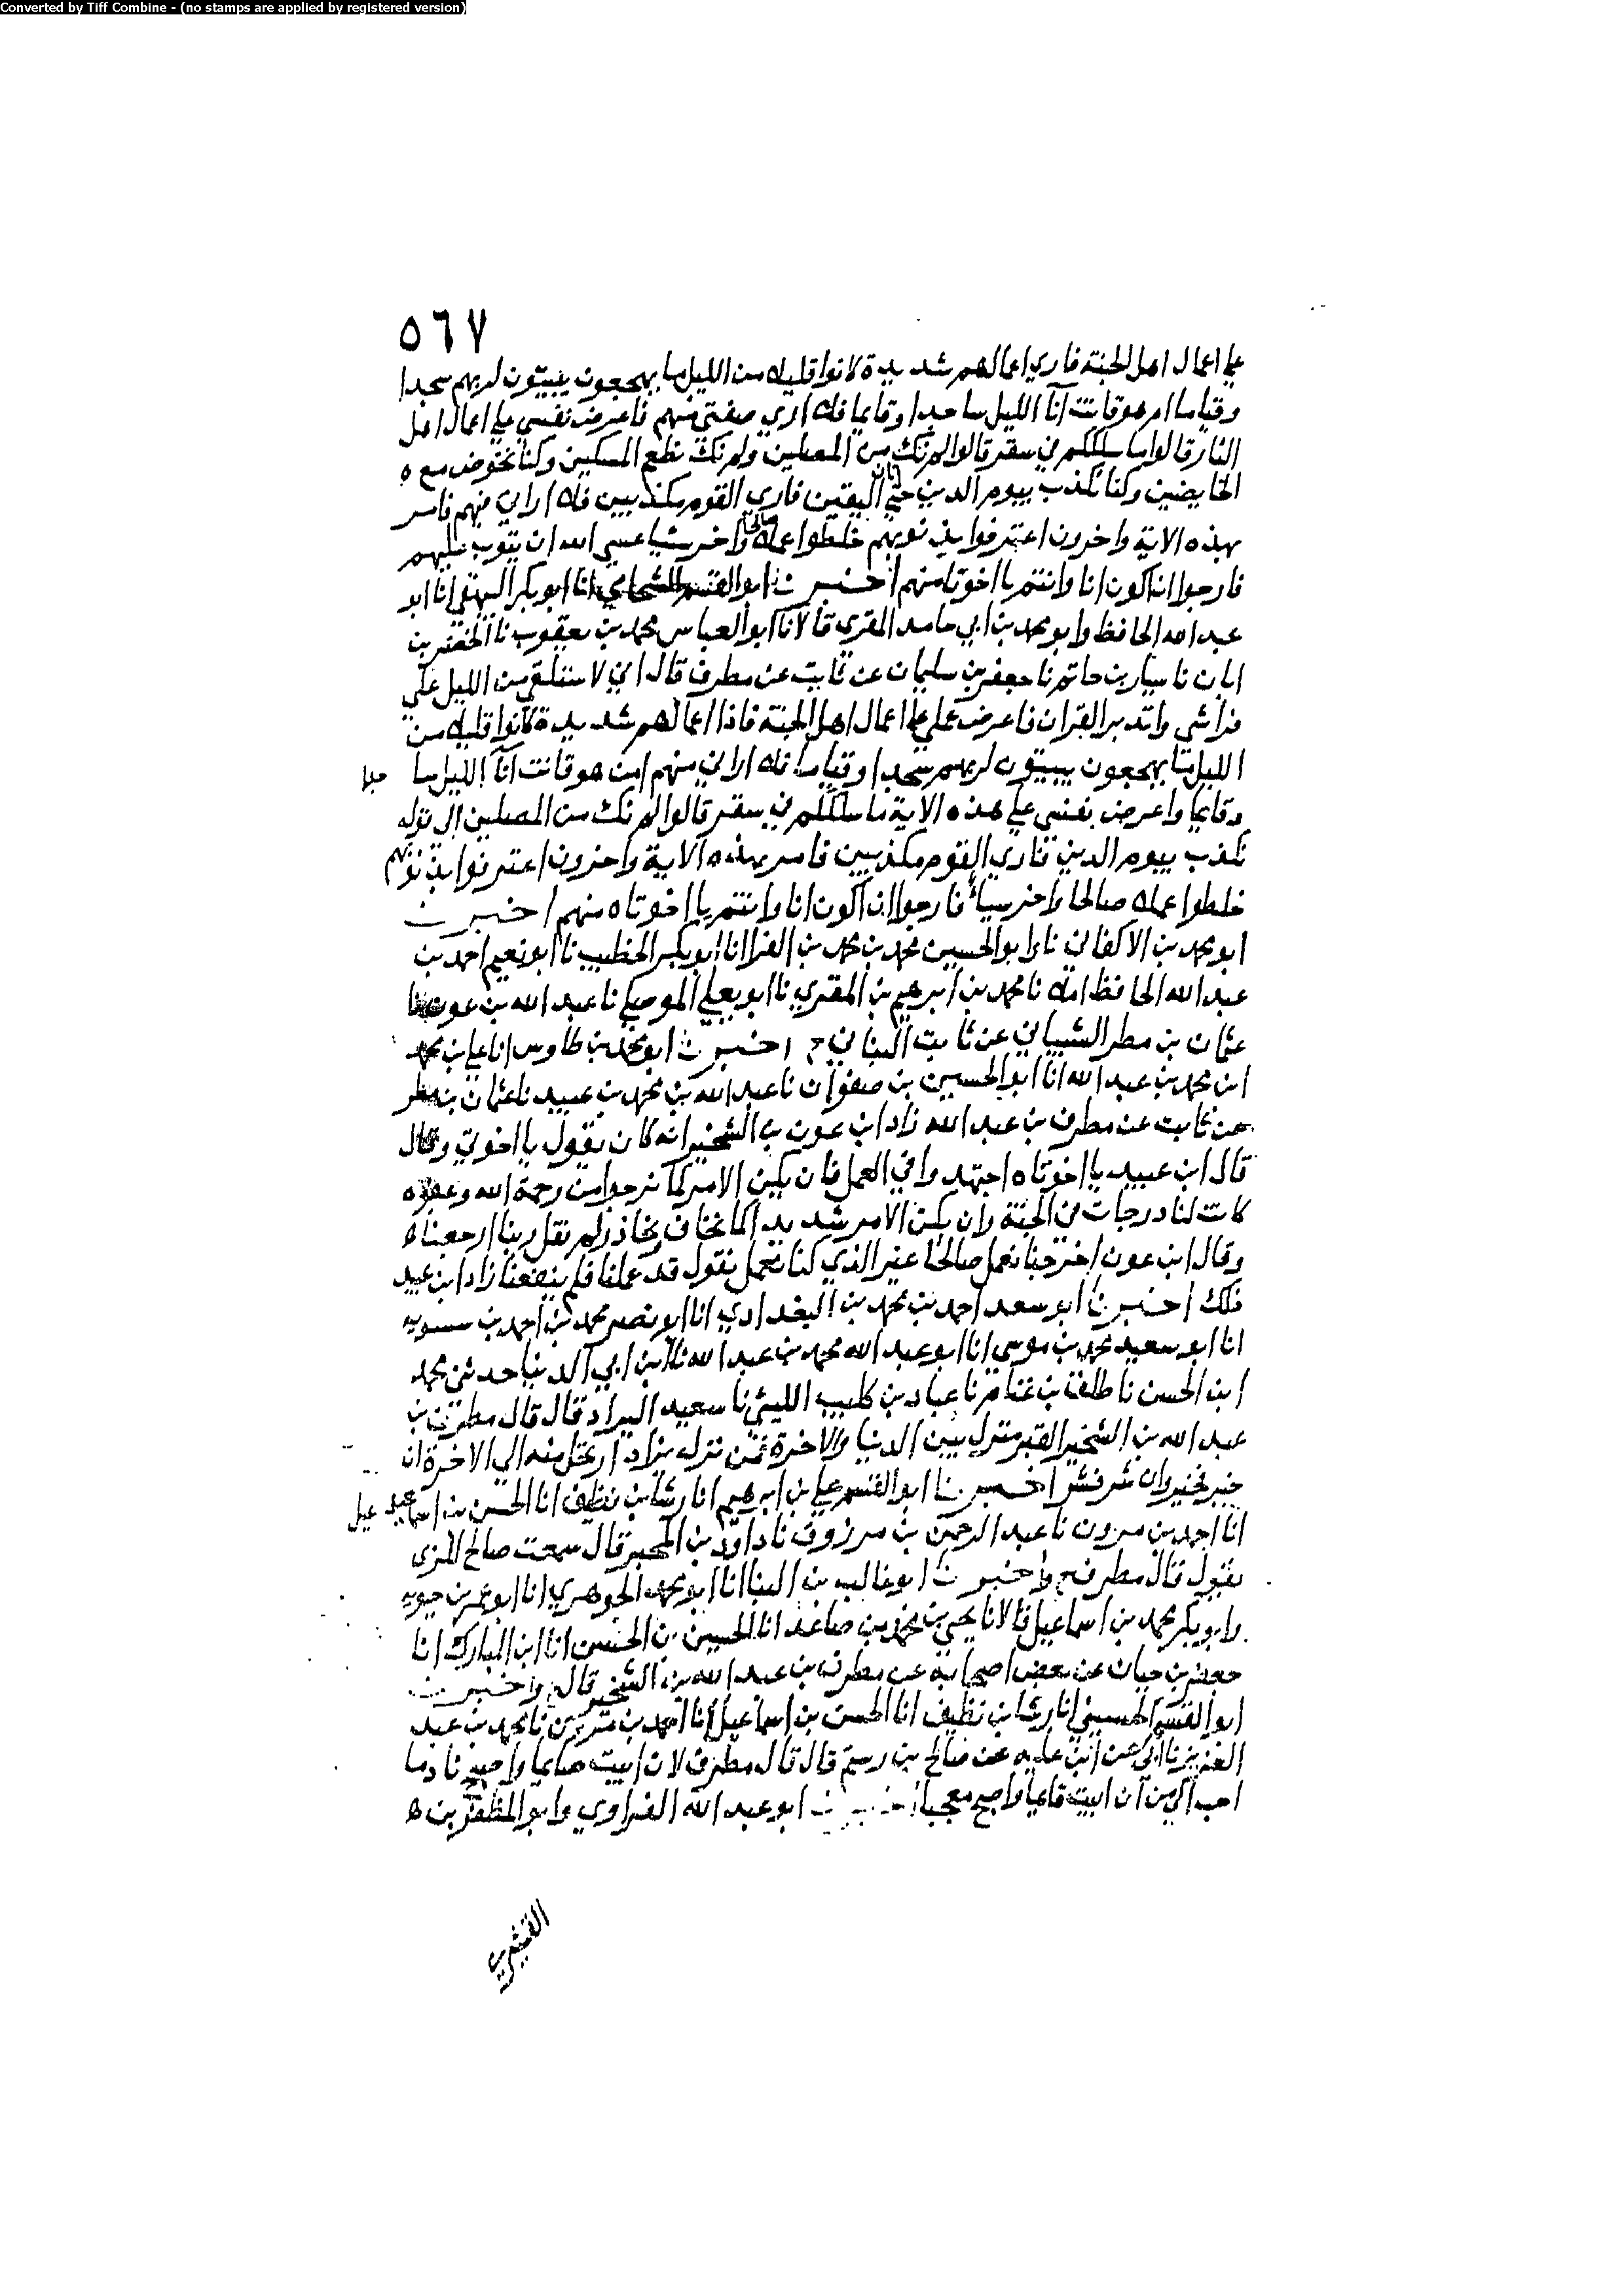 Converted by Tiff Combine - (no stamps are applied by registered version)
٥٦٧
على اعمال اهل الجنة فارى اعمالهم شديدة كانوا قليلا من الليل ما يهجعون يبيتون لربهم سجدا
وقياما امن هو قانت آنا الليل ساجدا وقايما فلا ارى صفتي منهم فاعرض نفسي على اعمال اهل
النار قالوا ما سلككم في سقر قالوا لم نك من المصلين ولم نك نطعم المسكين وكنا نخوض مع
الخايضين وكنا نكذب بيوم الدين حتى اتانا اليقين فارى القوم مكذبين فلا اراني منهم فامر
بهذه الاية واخرون اعترفوا بذنوبهم خلطوا عملا صالحا واخر سيا عسى الله ان يتوب عليهم
فارجوا ان اكون انا وانتم يا اخوتا منهم اخبرنا ابو القسم الشحامي انا ابو بكر البيهقي انا ابو
عبد الله الحافظ وابو محمد بن ابي حامد المقري قالا نا ابو العباس محمد بن يعقوب نا الخضر بن
ابان نا سيار بن حاتم نا جعفر بن سليمان عن ثابت عن مطرف قال اني لاستلقي من الليل على
فراشي واتدبر القران فاعرض عملي على اعمال اهل الجنة فاذا اعمالهم شديدة كانوا قليلا من
الليل ما يهجعون يبيتون لربهم سجدا وقياما فلا اراني منهم امن هو قانت آنا الليل سا جدا
وقايما واعرض نفسي على هذه الاية ما سلككم في سقر قالوا لم نك من المصلين الى قوله
نكذب بيوم الدين فارى القوم مكذبين فامر بهذه الاية واخرون اعترفوا بذنوبهم
خلطوا عملا صالحا واخر سيئا فارجوا ان اكون انا وانتم يا اخوتاه منهم اخبرنا
ابو محمد بن الاكفاني نا ابو الحسين محمد بن محمد بن الفرا انا ابو بكر الخطيب نا ابو نعيم احمد بن
عبد الله الحافظ املا نا محمد بن ابرهيم بن المقري نا ابو يعلى الموصلي نا عبد الله بن عون نا
عثمان بن مطر الشيباني عن ثابت البناني ح اخبرنا ابو محمد بن طاوس انا علي بن محمد
ابن محمد بن عبد الله انا ابو الحسين بن صفوان نا عبد الله بن محمد بن عبيد نا عثمان بن مطر
عن ثابت عن مطرف بن عبد الله زاد ابن عون بن الشخير انه كان يقول يا اخوتي وقال
قال ابن عبيد يا اخوتاه اجتهدوا في العمل فان يكن الامر كما نرجوا من رحمة الله وعفوه
كانت لنا درجات في الجنة وان يكن الامر شديدا كما نخاف ونحاذر لم نقل ربنا ارجعنا
وقال ابن عون اخرجنا نعمل صالحا غير الذي كنا نعمل نقول قد عملنا فلم ينفعنا زاد ابن عبيد
ذلك اخبرنا ابو سعد احمد بن محمد بن البغدادي انا ابو نصر محمد بن احمد بن سسويه
انا ابو سعيد محمد بن موسى انا ابو عبد الله محمد بن عبد الله نا ابن ابي الدنيا حدثني محمد
ابن الحسن نا طلق بن غنام نا عباد بن كليب الليثي نا سعيد البراد قال قال مطرف بن
عبد الله بن الشخير القبر منزل بين الدنيا والاخرة فمن نزله بزاد ارتحل منه الى الاخرة ان
خير فخير وان شر فشر اخبرنا ابو القسم علي بن ابرهيم انا رشا بن نظيف انا الحسن بن اسماعيل
انا احمد بن مرون نا عبد الرحمن بن مرزوق نا داود بن المحبر قال سمعت صالح المزي
يقول قال مطرف ح واخبرنا ابو غالب بن البنا انا ابو محمد الجوهري انا ابو عمر بن حيويه
وابو بكر محمد بن اسماعيل قالا نا يحيى بن محمد بن صاعد انا الحسين بن الحسن انا ابن المبارك انا
جعفر بن حيان عن بعض اصحابه عن مطرف بن عبد الله بن الشخير قال واخبرنا
ابو القسم الحسيني انا رشا بن نظيف انا الحسن بن اسماعيل انا احمد بن مرون نا محمد بن عبد
العزيز نا ابي عن ابن علية عن صالح بن رستم قال قال مطرف لان ابيت صايما واصبح نادما
احب الي من ان ابيت قايما واصبح معجبا اخبرنا ابو عبد الله الفراوي وابو المظفر بن
القشيري